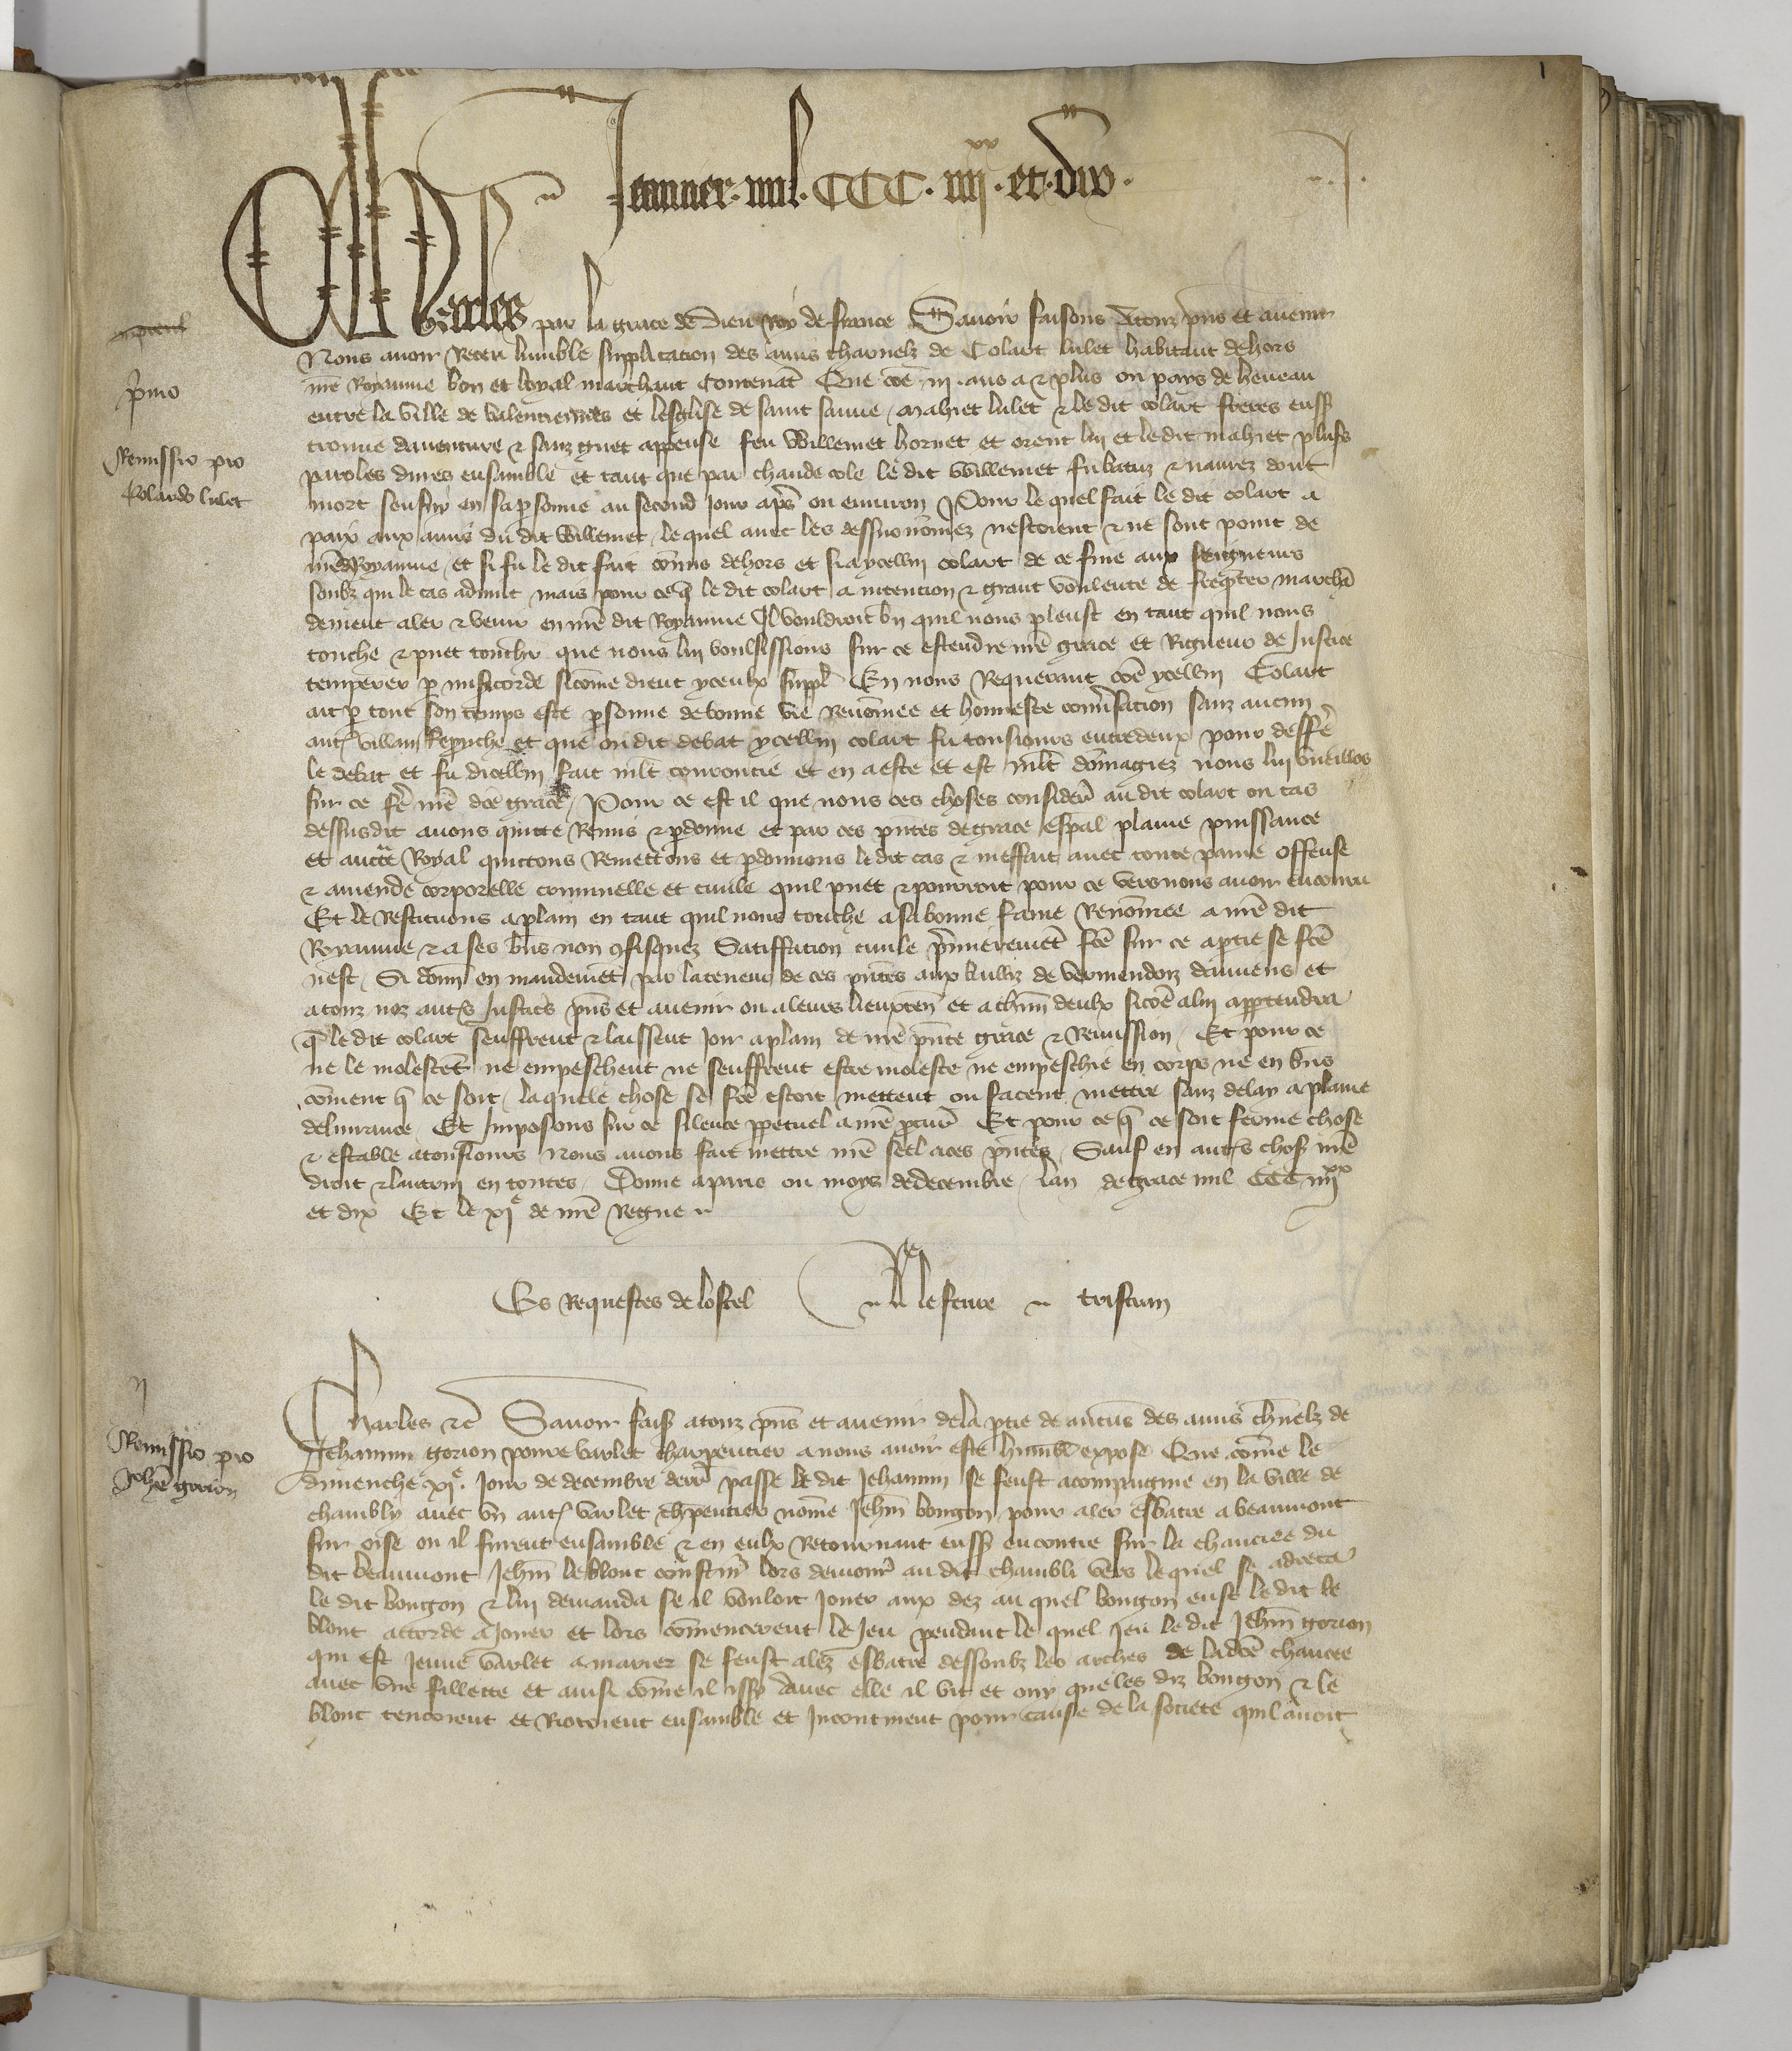 1
Januier. mil. CCC. iiii xx. et. dix.
.I.
Charles par la grace de Dieu Roy de france Sauoir faisons Atouz pns et auenir
Nous auoir Receu lumble supplicacion des amis charnelz de Colart lulet habitant dehors
nre Royaume bon et loyal marchant Contenāt Que cōe .iii. ans a & plus ou pays de heneau
p̄mo
entre la ville de Valenciennes et lesglise de saint sauue / mahiet lulet & le dit colart freres euss̄
trouue dauenture & sanz guet appense feu Willemet hornet et orent lui et le dit mahiet plus̄s
Remissio pro
Colardo lulet
paroles dures ensamble et tant que par chaude cole le dit Willemet fu batuz & naurez dont
mort sensuy en sa psonne au second Jour ap̄s ou enuiron Pour le quel fait le dit colart a
paix aux amis du dit Willemet / le quel auec les dessus nōmez nestoient & ne sont point de
nrēd Royaume / et si fu le dit fait cōmis dehors et si a ycellui colart de ce fine aux seigneurs
soubz qui le cas aduint mais pour ce q̄ le dit colart a intencion & grant voulente de freq̄nter marchā
dement aler & venir en nrē dit Royaume Il vouldroit bn̄ quil nous pleust en tant quil nous
touche & puet touchr que nous lui voulsissions sur ce estendre nrē grace et Rigueur de Justice
temperer p misicorde sicōme dient yceulx suppl̄ En nous Requerant cōe ycellui Colart
ait p tout son temps este psonne de bonne vie Renōmee et honneste conūsacion sanz aucun
autr̄ villain Reprouche et que ou dit debat ycellui colart fu tousiours entredeux pour deffē
le debat et fu dicellui fait mlt courroucie et en a este et est mlt dōmagiez nous lui vueillōs
sur ce fē nrē dcē grace / Pour ce est il que nous ces choses considerē au dit colart ou cas
dessusdit auons quitte Remis & pdonne et par ces pntes de grace espal plaine puissance
et aucte Royal quittons Remettons et pdonnons le dit cas & meffait auec toute paine offense
& amende corporelle criminelle et ciuile quil puet & pourroit pour ce vers nous auoir encouru
Et le Restituons a plain en tant quil nous touche a sa bonne fame Renōmee a nrē dit
Royaume & a ses bn̄s non 9fisquez Satiffacion ciuile p̄mieremēt fcē sur ce a ptie se fcē
nest / Si donn̄ en mandemēt par la teneur de ces pntēs aux bailliz de vermendoiz damiens et
a touz noz autr̄s Justic̄s pn̄s et auenir ou a leurs lieuxten̄ et a chūn deulx sicōe a lui apptendra
q̄ le dit colart seuffrent & laissent Joir a plain de nrē pnte grace & Remission / Et pour ce
ne le molestēt ne empeschent ne seuffrent estre moleste ne empeschie en corps ne en bn̄s
cōment q̄ ce soit / laquele chose se fcē estoit mettent ou facent mettre sanz delay a plaine
deliurance / Et Imposons sur ce silence ppetuel a nrē pcur̄ Et pour ce q̄ ce soit ferme chose
& estable a tousiours Nous auons fait mettre nrē seel a ces pntes / Sauf en autr̄s chos̄ nrē
droit & lautrui en toutes / Donne a paris ou moys de decembre / lan de grace mil CCC iiii xx
et dix Et le xi e de nrē Regne
Es Requestes de lostel lefeure tristran
ii
Charles &c̄ Sauoir fais̄ a touz pn̄s et auenir de la ptie de aucuns des amis chn̄elz de
Remissio pro
Johē gorion
Jehannin gorion poure varlet charpentier a nous auoir este humbl̄ expose Que cōme le
dimenche xi e. Jour de decembre derr̄ passe le dit Jehannin se feust acompaignie en la ville de
chambly auec vn autr̄ varlet chpentier nōme Jehn̄ bougon pour aler esbatre a beaumont
sur oise ou il furent ensamble & en eulx Retournant euss̄ encontre sur la chauciee du
dit beaumont Jehn̄ le blont cousturr̄ lors demourr̄ au dit chambli vers lequel se adreca
le dit bougon & lui demanda se il vouloit Jouer aux dez au quel bougon eust le dit le
blont accorde a Jouer et lors cōmencerent le Jeu pendant le quel Jeu le dit Jehn̄ gorion
qui est Jeune varlet a marier se feust alez esbatre dessoubz les arches de ladcē chaucee
auec vne fillette et ainsi cōme il yssy dauec elle il vit et ouy que les diz bougon & le
blont tencoient et Riotoient ensamble et Incontinent pour cause de la societe quil auoit